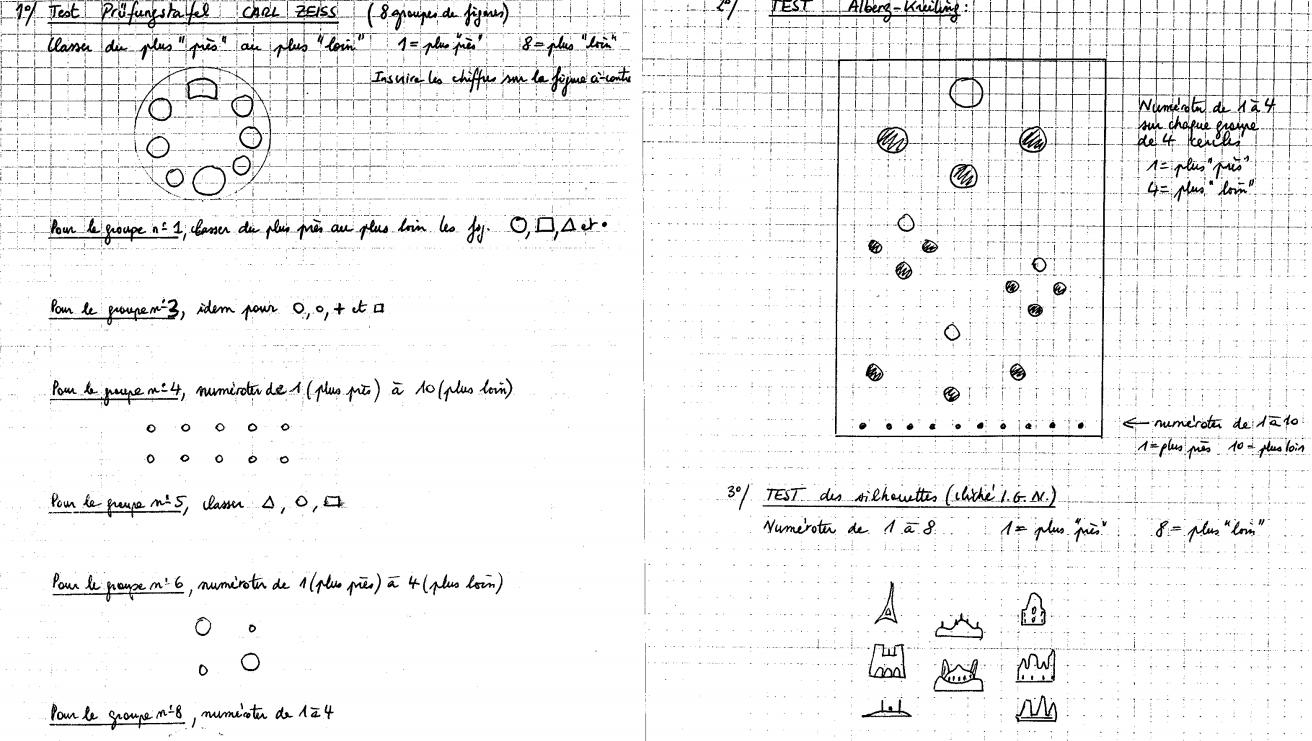 1°/ Test Prüfungstafel CARL ZEISS (8 groupes de figures)
Classer du plus "près" au plus "loin" 1 = plus "près" 8 = plus "loin"
Inscrire les chiffres sur la figure ci-contre
Pour le groupe n° 1, classer du plus près au plus loin les fig. ○, □, △ et •
Pour le groupe n° 3, idem pour ○, ○, + et □
Pour le groupe n° 4, numéroter de 1 (plus près) à 10 (plus loin)
Pour le groupe n° 5, classer △, ○, □
Pour le groupe n° 6, numéroter de 1 (plus près) à 4 (plus loin)
Pour le groupe n° 8, numéroter de 1 à 4
2°/ TEST Alberg-Kreiling:
Numéroter de 1 à 4
sur chaque groupe
de 4 cercles
1 = plus "près"
4 = plus "loin"
← numéroter de 1 à 10
1 = plus près 10 = plus loin
3°/ TEST des silhouettes (cliché I.G.N.)
Numéroter de 1 à 8 1 = plus "près" 8 = plus "loin"